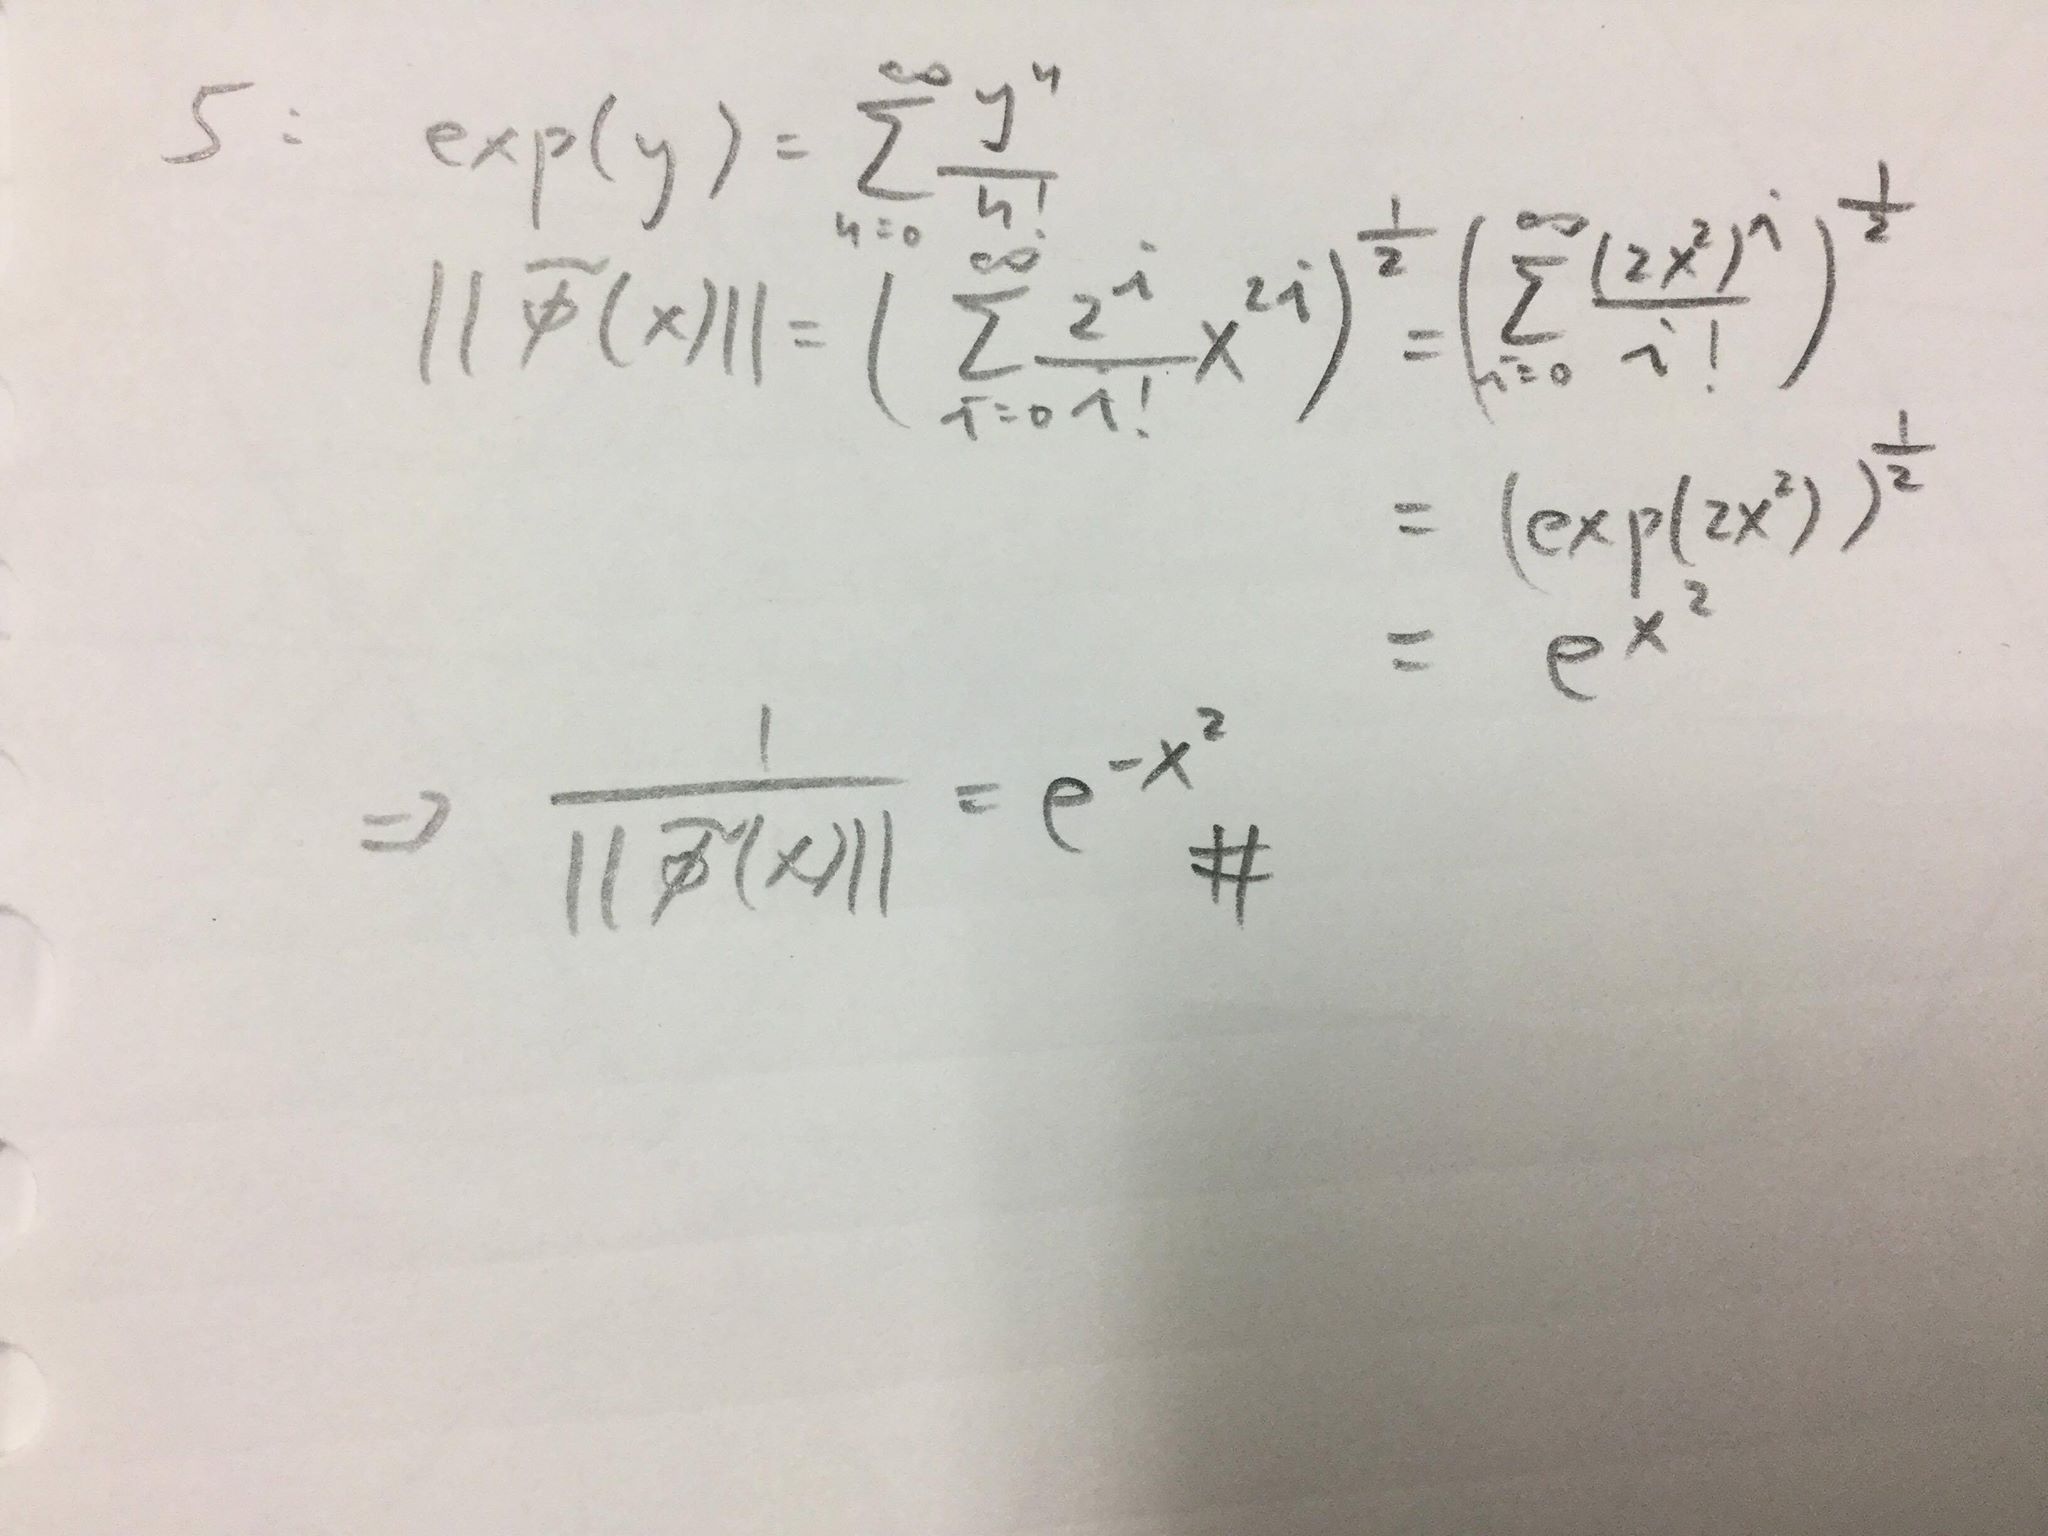 5: exp(y) = ∑_{n=0}^{∞} y^n / n!
||Φ̃(x)|| = (∑_{i=0}^{∞} 2^i / i! x^{2i})^{1/2} = (∑_{i=0}^{∞} (2x^2)^i / i!)^{1/2}
= (exp(2x^2))^{1/2}
= e^{x^2}
⇒ 1 / ||Φ̃(x)|| = e^{-x^2} #